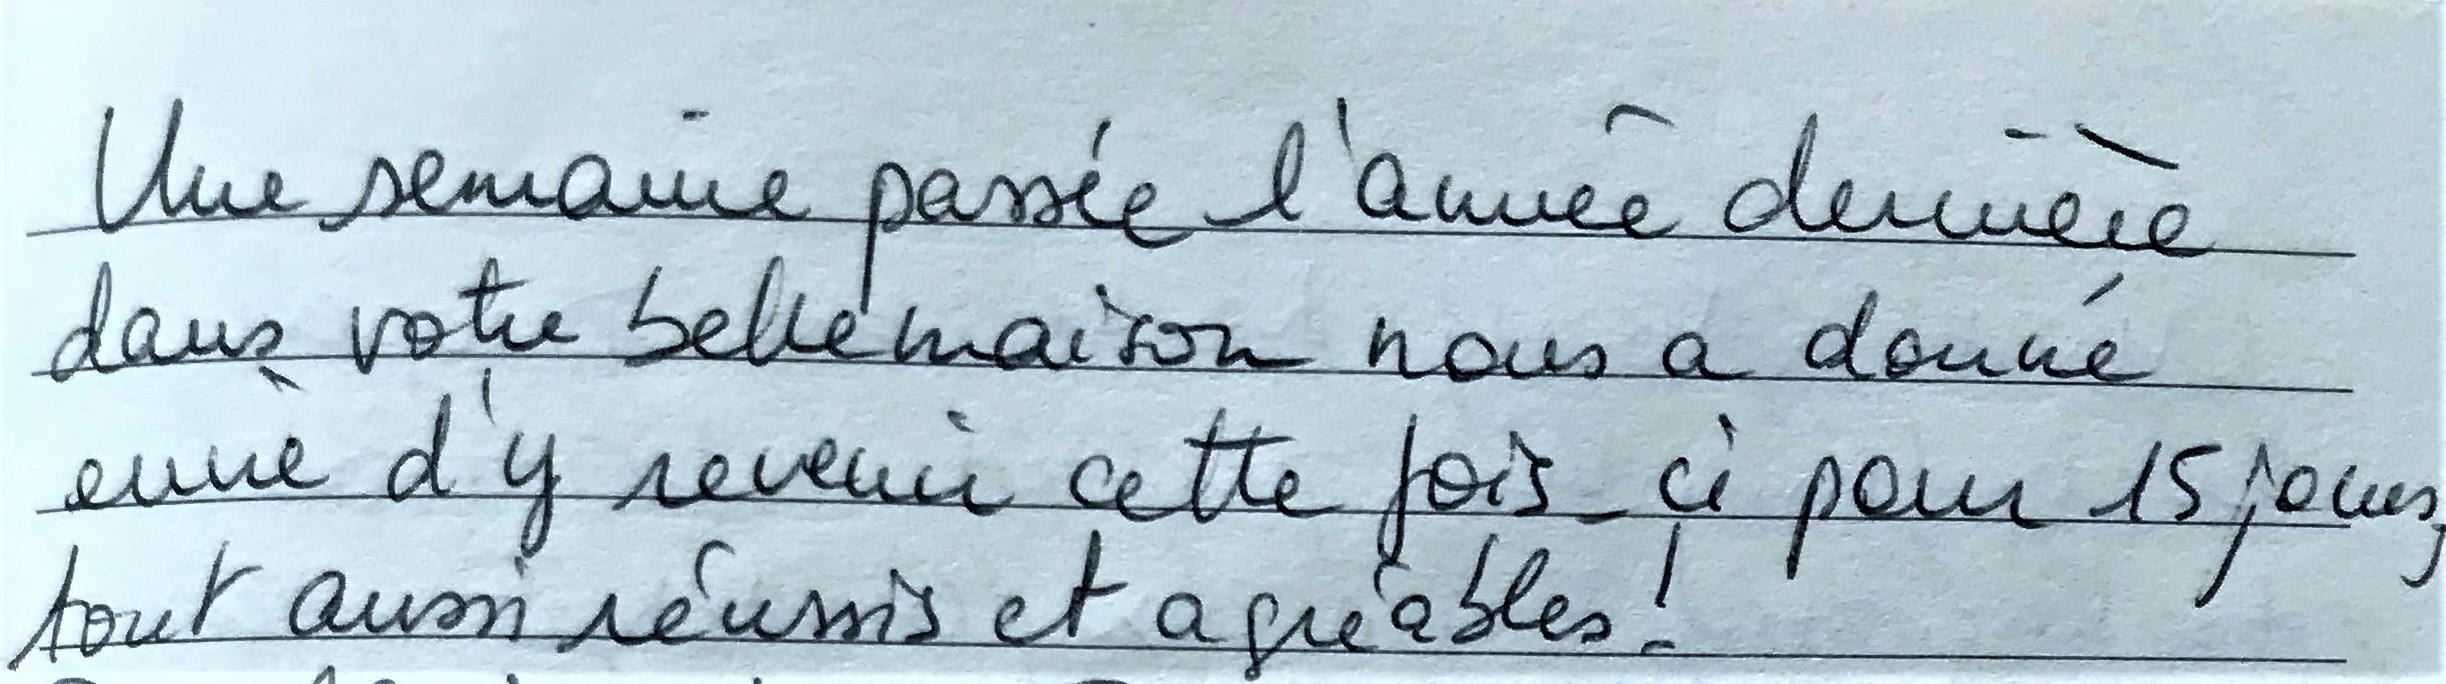 Une semaine passée l'année dernière
dans votre belle maison nous a donné
envie d'y revenir cette fois-ci pour 15 jours,
tout aussi réussis et agréables !